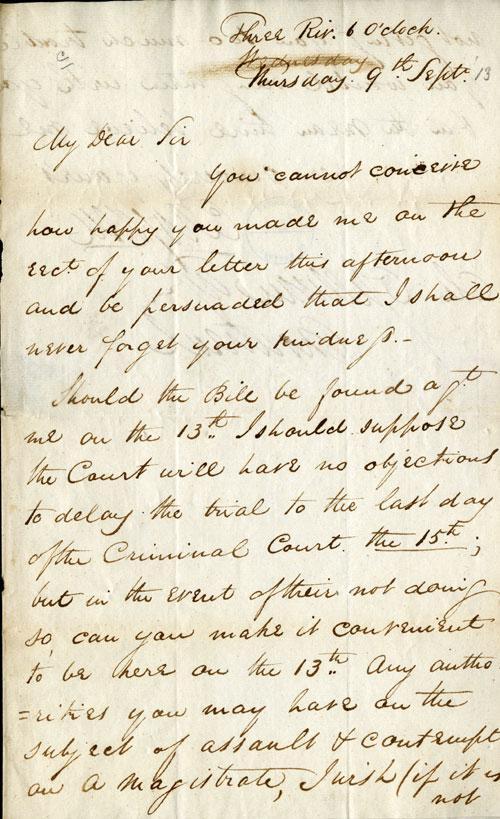 Three Riv. 6 O'clock.
Wednesday
Thursday 9th. Septr. 13
My Dear Sir
You cannot conceive
how happy you made me on the
rect. of your letter this afternoon
and be persuaded that I shall
never forget your kindness.–
Should the Bill be found agt.
me on the 13th. I should suppose
the Court will have no objections
to delay the trial to the last day
of the Criminal Court the 15th.;
but in the event of their not doing
so, can you make it convenient
to be here on the 13th. Any autho
=rities you may have on the
subject of assault & contempt
on a magistrate, I wish (if it is
not